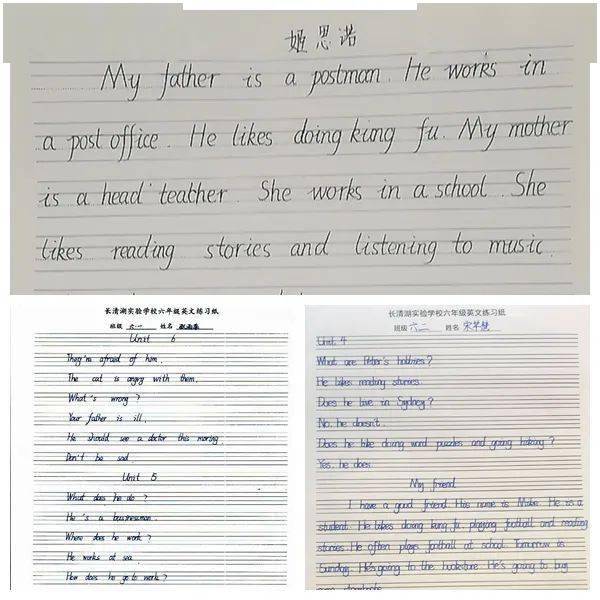 姬思诺
My father is a postman. He works in
a post office. He likes doing kung fu. My mother
is a head teacher. She works in a school. She
likes reading stories and listening to music.
长清湖实验学校六年级英文练习纸
班级 六.一 姓名
Unit 6
They're afraid of him.
The cat is angry with them.
What's wrong?
Your father is ill.
He should see a doctor this moring.
Don't be sad.
Unit 5
What does he do?
He's a businessman.
Where does he work?
He works at sea.
How does he go to work?
长清湖实验学校六年级英文练习纸
班级 六二 姓名 宋梦慧
Unit 4
What are Peter's hobbies?
He likes reading stories.
Does he live in Sydney?
No, he doesn't.
Does he like doing word puzzles and going hiking?
Yes, he does.
My friend
I have a good friend. His name is Mike. He is a
student. He likes doing kung fu, playing football and reading
stories. He often plays football at school. Tomorrow is
Sunday. He's going to the bookstore. He's going to buy